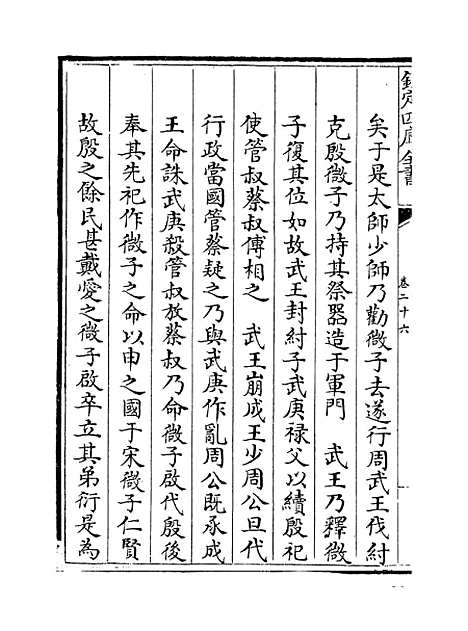 欽定四庫全書
卷二十六
矣于是太師少師乃勸微子去遂行周武王伐紂
克殷微子乃持其祭器造于軍門　武王乃釋微
子復其位如故武王封紂子武庚禄父以續殷祀
使管叔蔡叔傅相之　武王崩成王少周公旦代
行政當國管蔡疑之乃與武庚作亂周公既承成
王命誅武庚殺管叔放蔡叔乃命微子啟代殷後
奉其先祀作微子之命以申之國于宋微子仁賢
故殷之餘民甚戴愛之微子啟卒立其弟衍是為